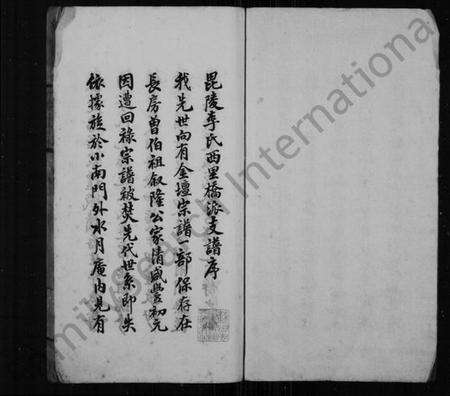 毘陵李氏西里橋派支譜序
我先世向有金壇宗譜一部保存在
長房曾伯祖叙隆公家清咸豐初元
因遭回祿宗譜被焚先代世系即失
依據旋於小南門外水月庵內見有
FamilySearch International